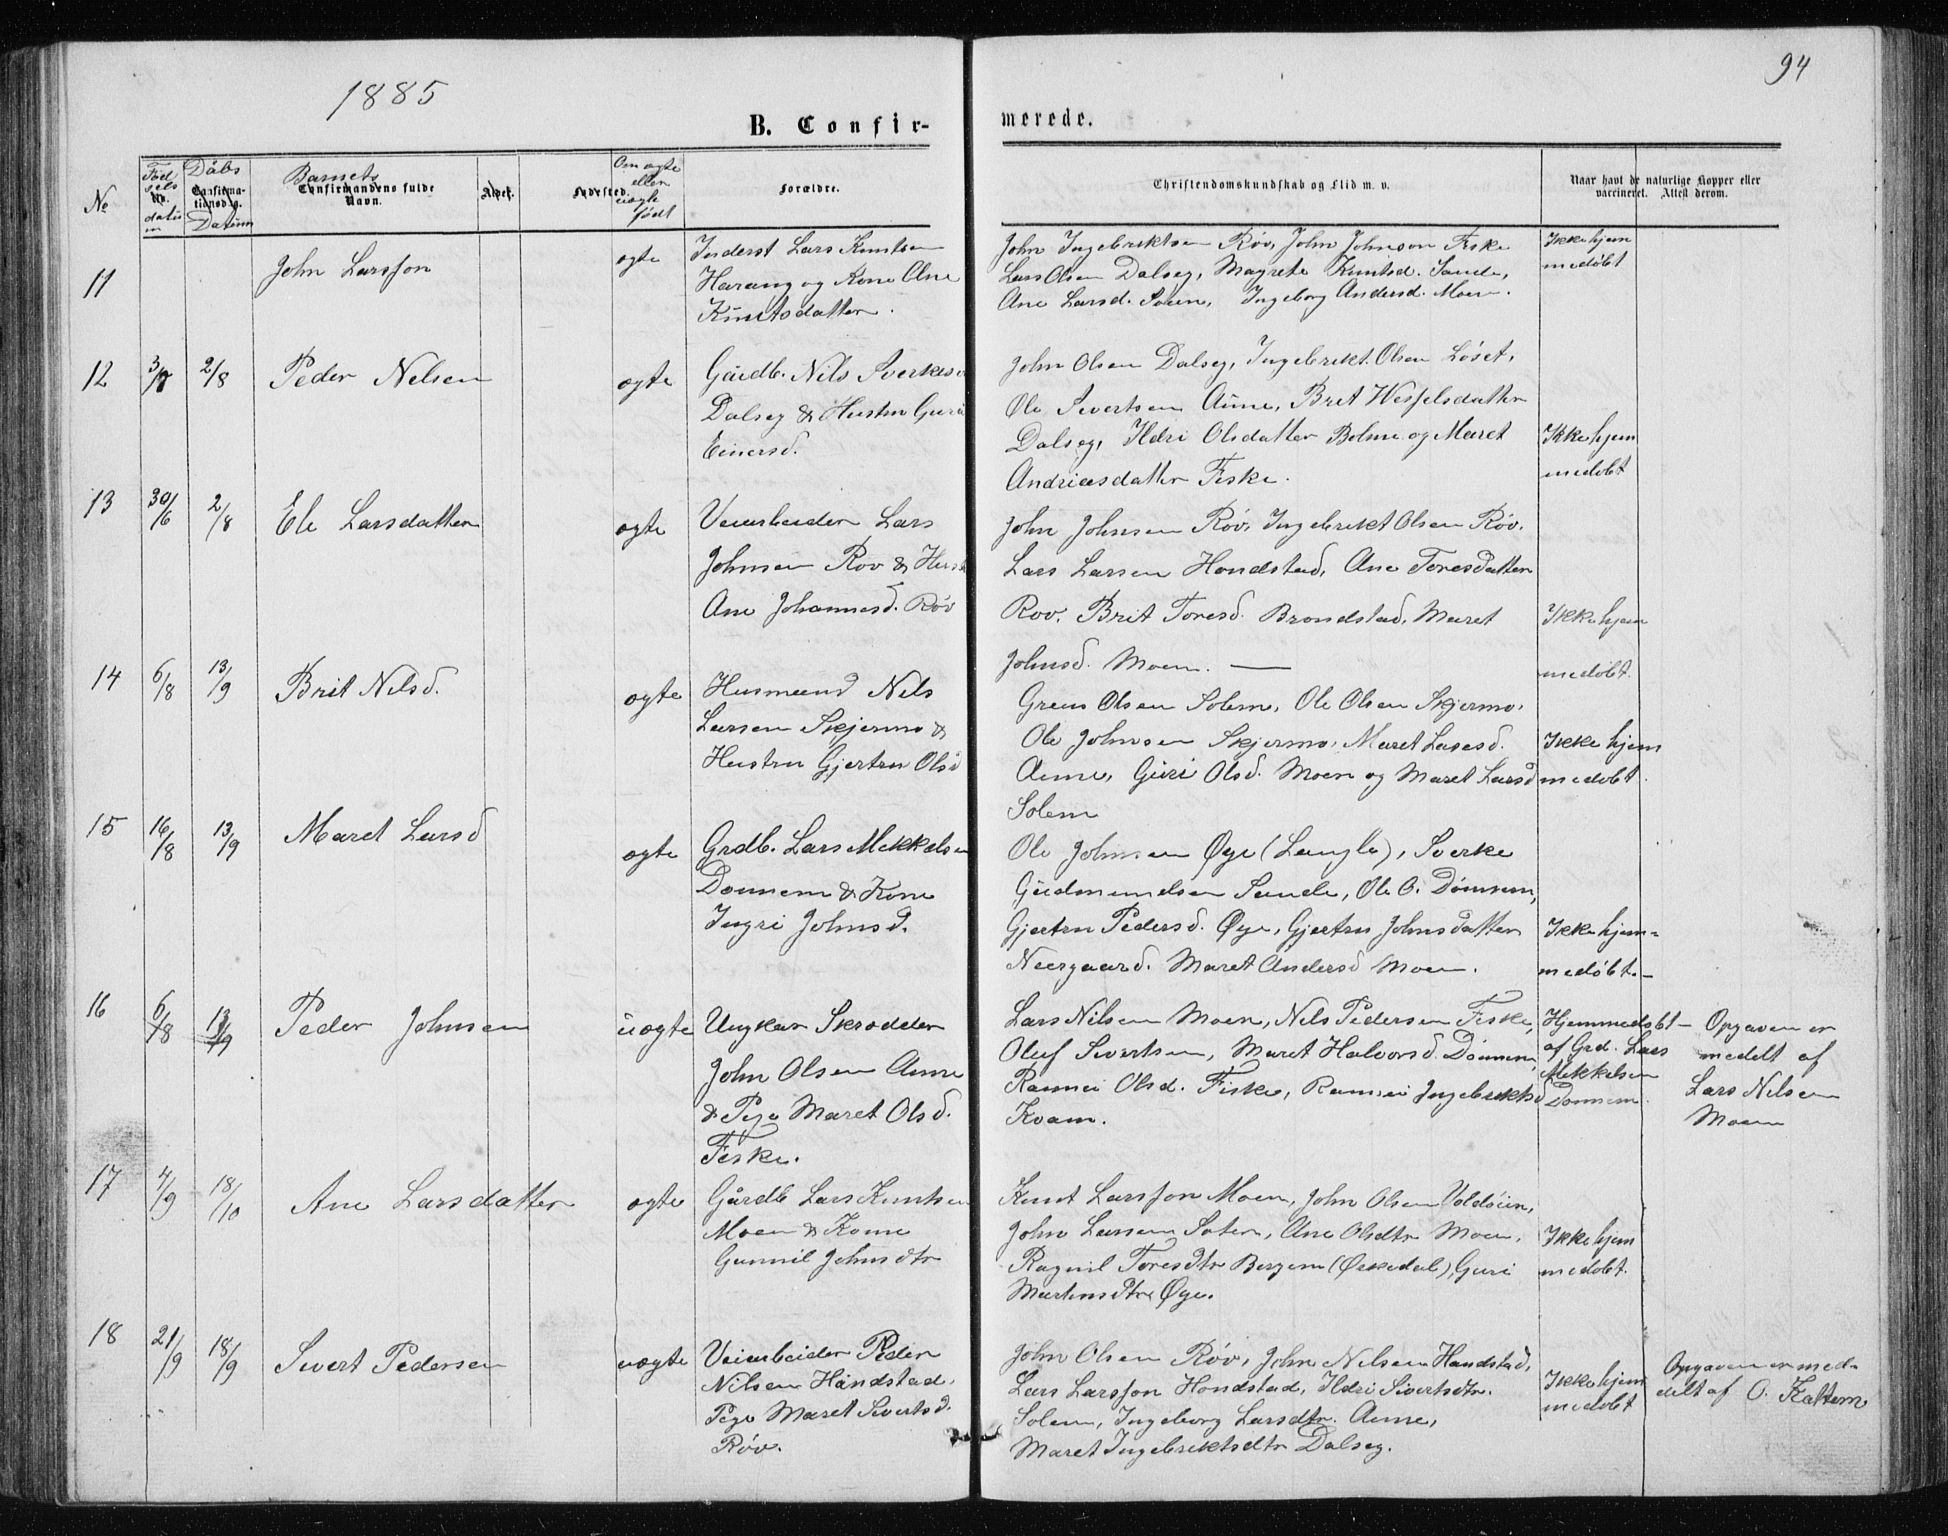 1885
94
B. Confir-
merede.
No
Fødselsdatum
No.
Dåbs
Confirmationsdg.
Datum
Barnets
Confirmandens fulde Navn.
Alder.
Fødested.
Om ægte eller uægte født
Forældre.
Christendomskundskab og Flid m. v.
Naar havt de naturlige Kopper eller vaccineret. Attest derom.
11
John Larsson
ægte
Inderst Lars Knutsen
Harang og Kone Ane
Knutsdatter.
John Ingebriktsen Røv, John Johnson Fiske
Lars Olsen Dalseg, Magrete Knutsd. Sande,
Ane Larsd. Søien, Ingeborg Andersd. Moen.
Ikke hjem
medøbt
12
3/7
2/8
Peder Nelsen
ægte
Gårdb. Nils Sverkesen
Dalseg & Hustru Guri
Einersd.
John Olsen Dalseg, Ingebrikt Olsen Løset,
Ole Sivertsen Aune, Brit Wesselsdatter
Dalseg, Ildri Olsdatter Bolme og Maret
Andreasdatter Fiske.
Ikke hjem
medøbt
13
30/6
2/8
Eli Larsdatter
ægte
Veiarbeider Lars
Johnsen Røv & Hust
Ane Johannesd. Røv
John Johnsen Røv, Ingebrikt Olsen Røv,
Lars Larsen Hondstad, Ane Toresdatter
Røv, Brit Toresd. Brøndstad, Maret
Johnsd. Moen. —
Ikke hjem
medøbt.
14
6/8
13/9
Brit Nilsd.
ægte
Husmand Nels
Larsen Skjermo &
Hustru Gjertru Olsd
Olsen Solem, Ole Olsen Skjermo,
Ole Johnsen Skjermo, Maret Lasesd.
Aune, Guri Olsd. Moen og Maret Larsd
Solem
Ikke hjem
medøbt.
15
16/8
13/9
Maret Larsd
ægte
Grdb. Lars Mekkelsen
Dønnem & Kone
Ingri Johnsd.
Ole Johnsen Øye (Langlo), Sverke
Gudmundsen Sande, Ole O. Dønnem,
Gjertru Pedersd. Øye, Gjertru Johnsdatter
Neergaard. Maret Andersd Moen.
Ikke hjem-
medøbt.-
16
6/8
13/9
Peder Johnsen
uægte
Ungkar Skrædder
John Olsen Aune
& Pige Maret Olsd.
Fiske.
Lars Nilsen Moen, Nels Pedersen Fiske,
Oluf Sivertsen, Maret Halvorsd. Dønnem,
Rannei Olsd. Fiske, Rannei Ingebriktsd
Kvam.
Hjemmedøbt-
af Grd. Lars
Mekkelsen
Dønnem.
Opgaven er
medelt af
Lars Nelsen
Moen
17
4/9
18/10
Ane Larsdatter
ægte
Gårdb Lars Knutsen
Moen & Kone
Gunnil Johnsdtr
Knut Larsson Moen, John Olsen Voldøien,
John Larsen Sæter, Ane Olsdtr Moen,
Ragnil Toresdtr Bergem (Ørkedal), Guri
Martinsdtr Øye.
Ikke hjem
medøbt.
18
21/9
18/9
Sivert Pedersen
uægte
Veiarbeider Peder
Nilsen Håndstad,
Pige Maret Sivertsd.
Røv.
John Olsen Røv, John Nilsen Handstad,
Lars Larsson Hondstad, Ildri Sivertsdtr.
Solem, Ingeborg Larsdtr. Aune,
Maret Ingebriktsdtr Dalseg.
Ikke hjem
medøbt
Opgaven er med-
delt af O. Kattem